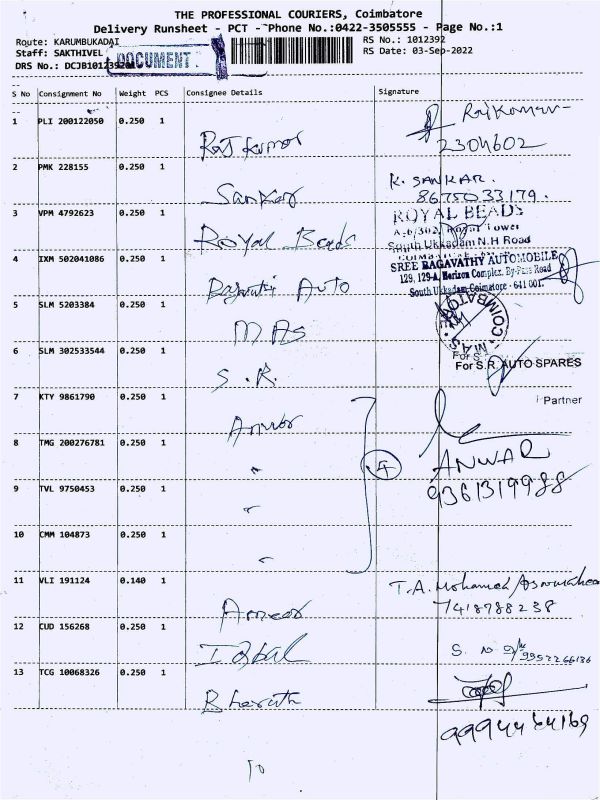 THE PROFESSIONAL COURIERS, Coimbatore
Delivery Runsheet - PCT - Phone No.:0422-3505555 - Page No.:1
Route: KARUMBUKADAI RS No.: 1012392
Staff: SAKTHIVEL RS Date: 03-Sep-2022
DRS No.: DCJB1012392
DOCUMENT
S No Consignment No Weight PCS Consignee Details Signature
1 PLI 200122050 0.250 1 Raj kumar Rajkumar
2304602
2 PMK 228155 0.250 1 Sankar K. SANKAR.
8675033179.
3 VPM 4792623 0.250 1 Royal Beads ROYAL BEADS
A.6/302, Royal Tower
South Ukkadam N.H Road
4 IXM 502041086 0.250 1 Bagavathi Auto SREE BAGAVATHY AUTOMOBILE
129, 129-A, Horizon Complex. By-Pass Road
South Ukkadam Coimbatore - 641 001.
5 SLM 5203384 0.250 1 M.AS COIMBATORE
6 SLM 302533544 0.250 1 S.R. For S.
For S.R. AUTO SPARES
Partner
7 KTY 9861790 0.250 1 Anwar
8 TMG 200276781 0.250 1 " 4 ANWAR
9361319988
9 TVL 9750453 0.250 1 "
10 CMM 104873 0.250 1 "
11 VLI 191124 0.140 1 Ameer T.A. Mohamed
7418788238
12 CUD 156268 0.250 1 Iqbal 9952266136
13 TCG 10068326 0.250 1 Bharath
9994464169